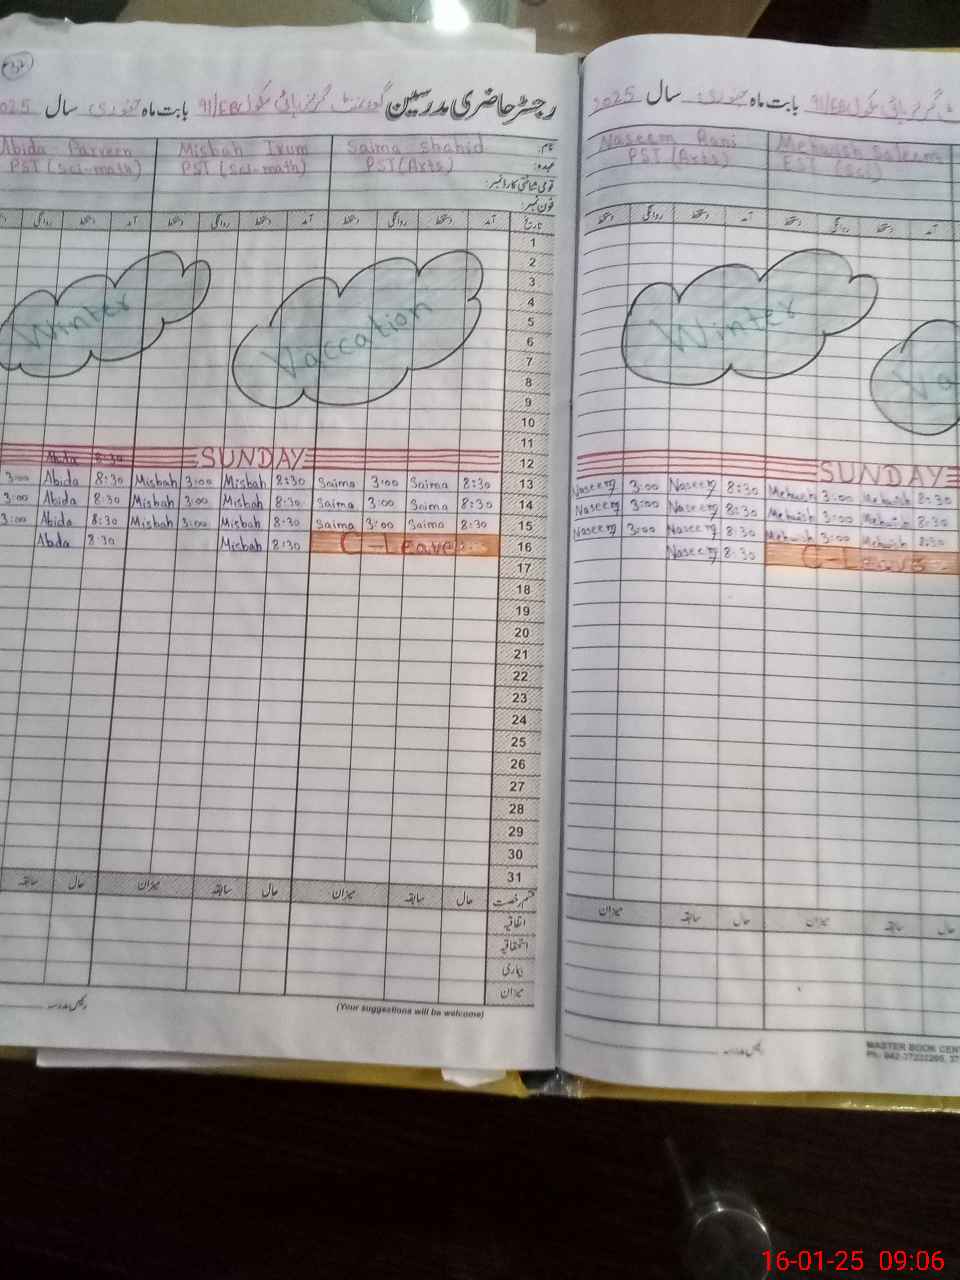 رجسٹر حاضری مدرسین گورنمنٹ گرلز ہائی سکول 91/EB بابت ماہ جنوری سال 2025
نام:
Saima Shahid
Misbah Irum
Abida Parveen
عہدہ:
PST (Arts)
PST (Sci-math)
PST (Sci-math)
قومی شناختی کارڈ نمبر:
فون نمبر:
تاریخ آمد دستخط روانگی دستخط آمد دستخط روانگی دستخط آمد دستخط روانگی
1
2
3
4
5
6
7
8
9
10
11
Winter Vaccation
12 SUNDAY
Abida 8:30
3:00 Abida 8:30 Misbah 3:00 Misbah 8:30 Saima 3:00 Saima 8:30 13
3:00 Abida 8:30 Misbah 3:00 Misbah 8:30 Saima 3:00 Saima 8:30 14
3:00 Abida 8:30 Misbah 3:00 Misbah 8:30 Saima 3:00 Saima 8:30 15
Abda 8:30 Misbah 8:30 C-Leave 16
17
18
19
20
21
22
23
24
25
26
27
28
29
30
31
قسم رخصت حال سابقہ میزان حال سابقہ میزان حال سابقہ
اتفاقیہ
استحقاقیہ
بیماری
میزان
(Your suggestions will be welcome)
رئیس مدرسہ
گرلز ہائی سکول 91/EB بابت ماہ جنوری سال 2025
Naseem Rani
Mehwish Saleem
PST (Arts)
EST (Sci)
آمد دستخط روانگی دستخط آمد دستخط روانگی دستخط
Winter
Va
SUNDAY
Naseem 3:00 Naseem 8:30 Mehwish 3:00 Mehwish 8:30
Naseem 3:00 Naseem 8:30 Mehwish 3:00 Mehwish 8:30
Naseem 3:00 Naseem 8:30 Mehwish 3:00 Mehwish 8:30
Naseem 8:30 C-Leave
حال سابقہ میزان حال سابقہ میزان
رئیس مدرسہ
MASTER BOOK CEN
16-01-25 09:06